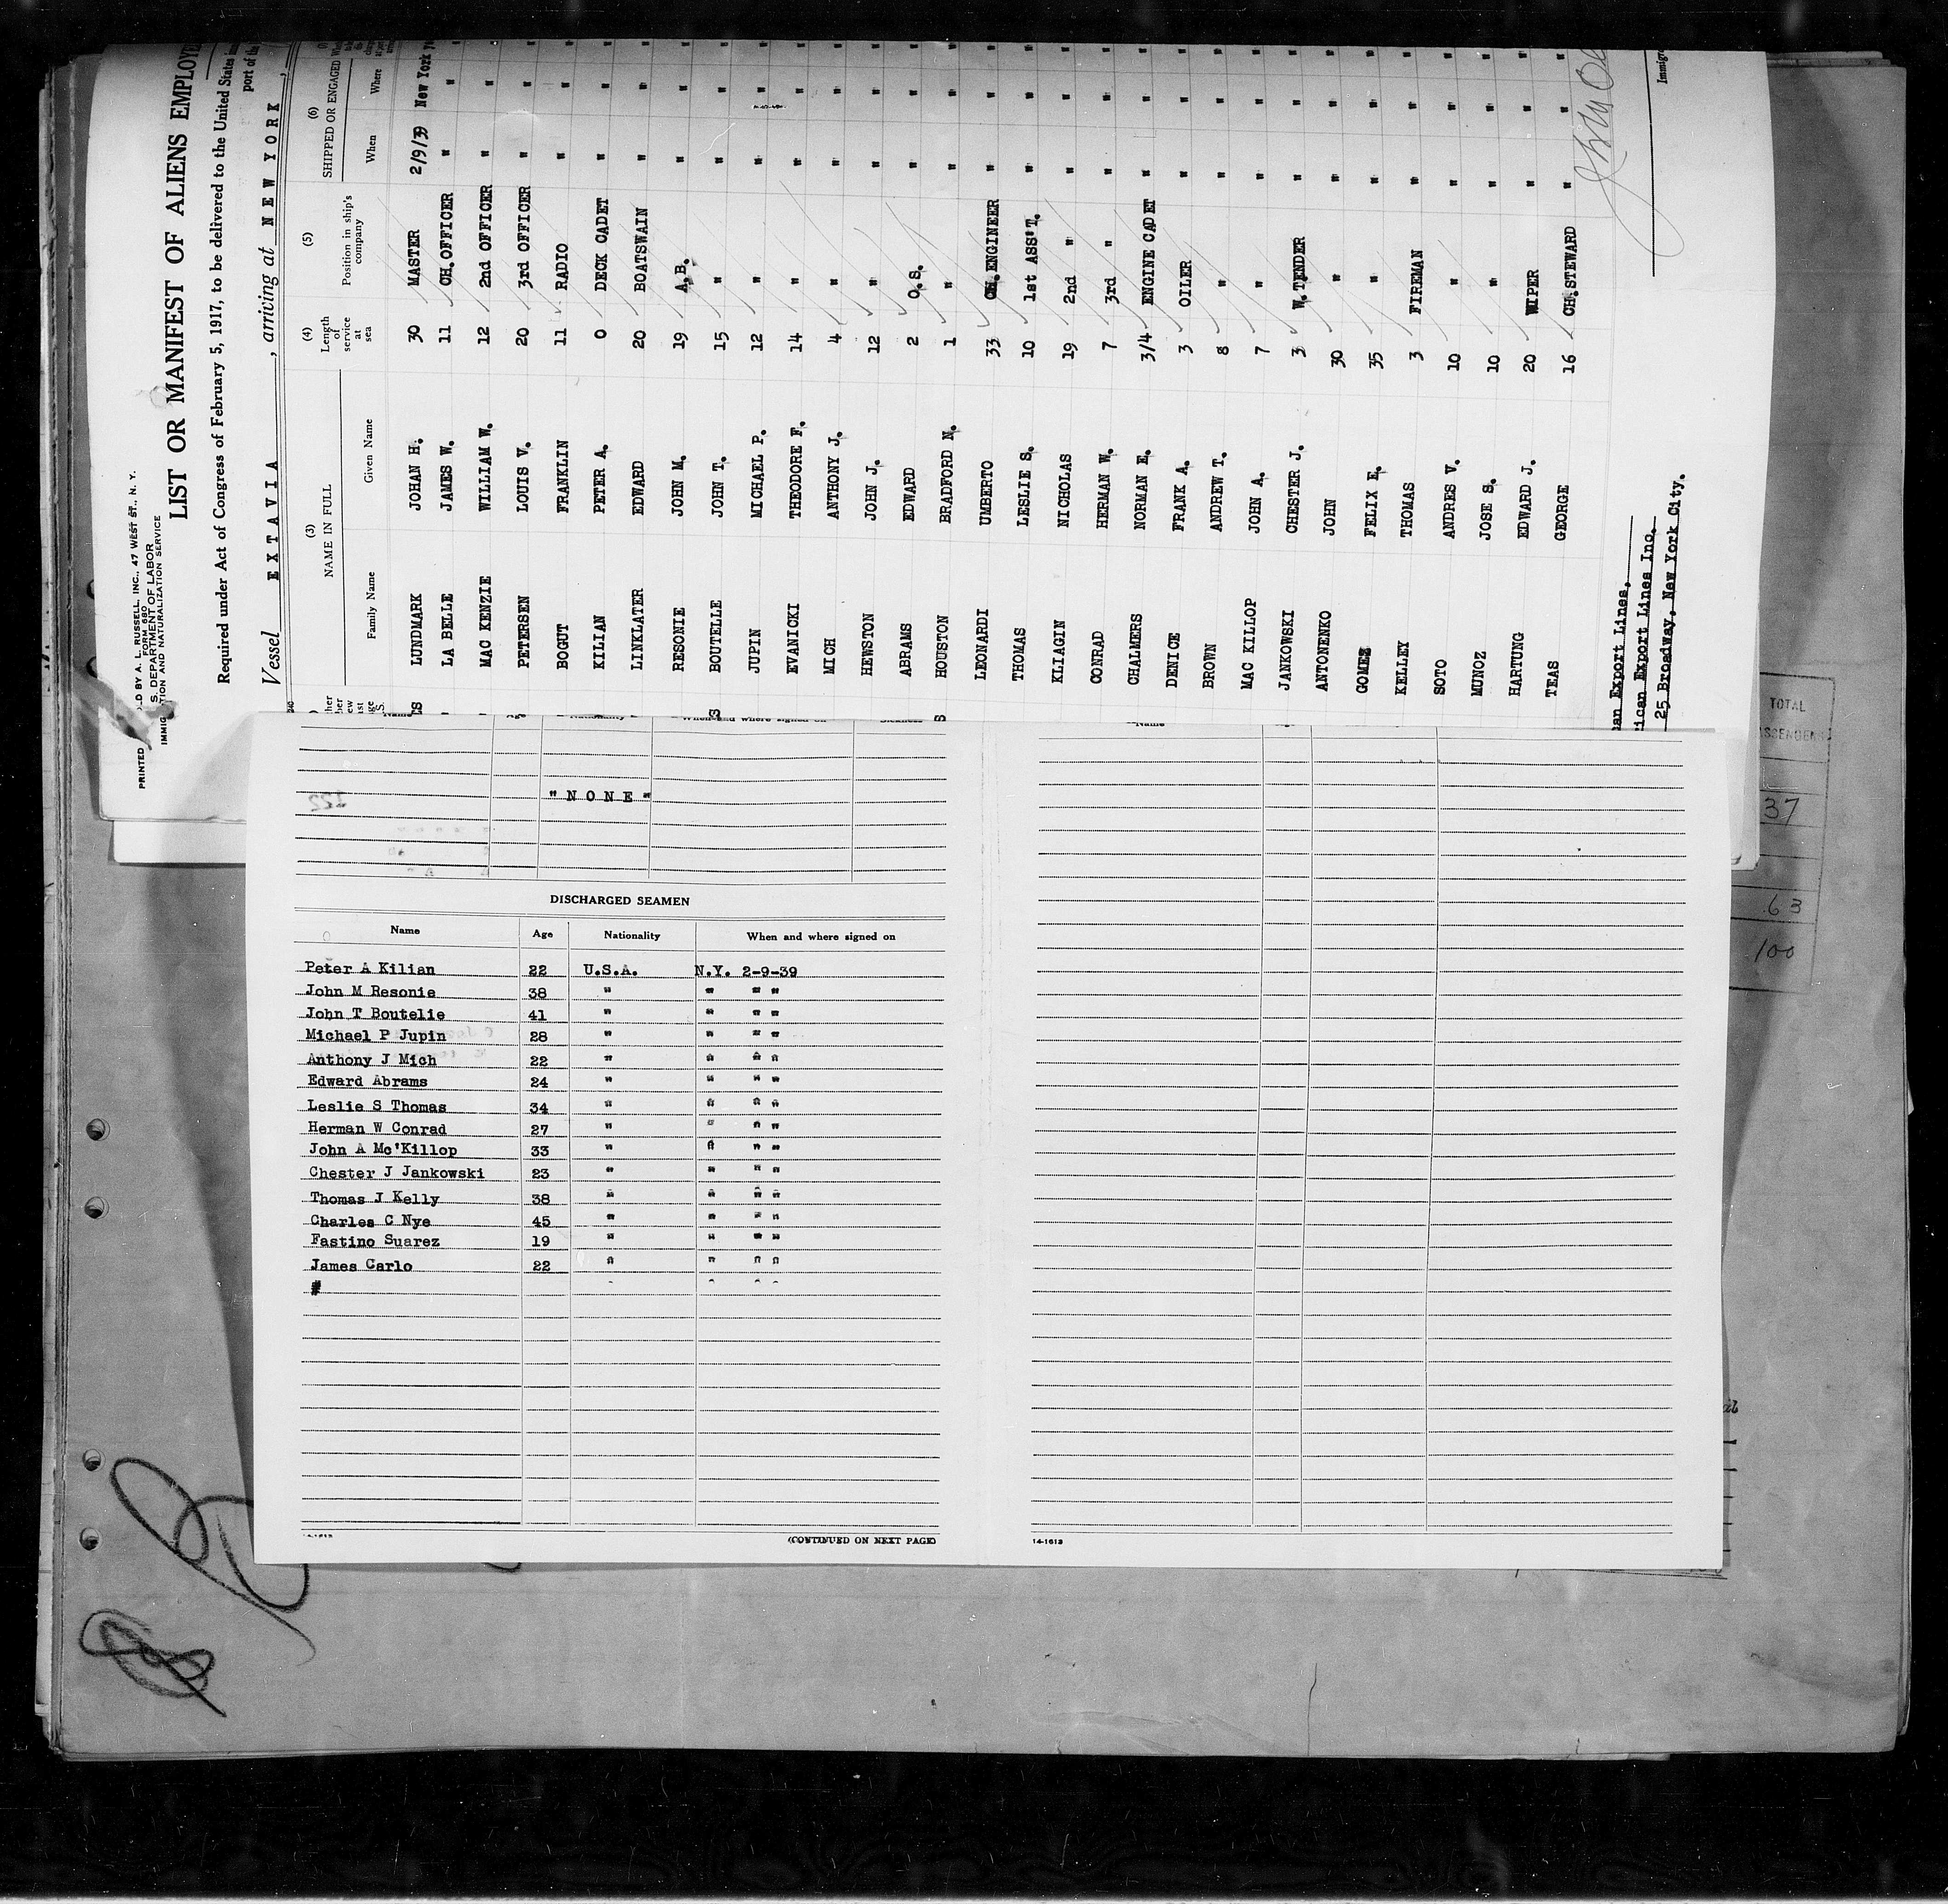 PRINTED
LD BY A. L. RUSSELL, INC., 47 WEST ST., N. Y.
FORM 680
S. DEPARTMENT OF LABOR
IMMIGRATION AND NATURALIZATION SERVICE
LIST OR MANIFEST OF ALIENS EMPLOYE
Required under Act of Congress of February 5, 1917, to be delivered to the United States
port of
Vessel EXTAVIA, arriving at NEW YORK,
(3) (4) (5) (6)
NAME IN FULL Length of service at sea Position in ship's company SHIPPED OR ENGAGED
Family Name Given Name When Where
LUNDMARK JOHAN H. 30 MASTER 2/9/39 New York
LA BELLE JAMES W. 11 CH.OFFICER " "
MAC KENZIE WILLIAM W. 12 2nd OFFICER " "
PETERSEN LOUIS V. 20 3rd OFFICER " "
BOGUT FRANKLIN 11 RADIO " "
KILIAN PETER A. 0 DECK CADET " "
LINKLATER EDWARD 20 BOATSWAIN " "
RESONIE JOHN M. 19 A.B. " "
BOUTELLE JOHN T. 15 " " "
JUPIN MICHAEL P. 12 " " "
EVANICKI THEODORE F. 14 " " "
MICH ANTHONY J. 4 " " "
HEWSTON JOHN J. 12 " " "
ABRAMS EDWARD 2 O.S. " "
HOUSTON BRADFORD N. 1 " " "
LEONARDI UMBERTO 33 CH.ENGINEER " "
THOMAS LESLIE S. 10 1st ASS'T. " "
KLIAGIN NICHOLAS 19 2nd " " "
CONRAD HERMAN W. 7 3rd " " "
CHALMERS NORMAN E. 3/4 ENGINE CADET " "
DENICE FRANK A. 3 OILER " "
BROWN ANDREW T. 8 " " "
MAC KILLOP JOHN A. 7 " " "
JANKOWSKI CHESTER J. 3 W.TENDER " "
ANTONENKO JOHN 30 " " "
GOMEZ FELIX E. 35 " " "
KELLEY THOMAS 3 FIREMAN " "
SOTO ANDRES V. 10 " " "
MUNOZ JOSE S. 10 " " "
HARTUNG EDWARD J. 20 WIPER " "
TEAS GEORGE 16 CH.STEWARD " "
an Export Lines,
ican Export Lines Inc.
25 Broadway, New York City.
Immigr
"NONE"
DISCHARGED SEAMEN
Name Age Nationality When and where signed on
Peter A Kilian 22 U.S.A. N.Y. 2-9-39
John M Resonie 38 " " " "
John T Boutelie 41 " " " "
Michael P Jupin 28 " " " "
Anthony J Mich 22 " " " "
Edward Abrams 24 " " " "
Leslie S Thomas 34 " " " "
Herman W Conrad 27 " " " "
John A Mc'Killop 33 " " " "
Chester J Jankowski 23 " " " "
Thomas J Kelly 38 " " " "
Charles C Nye 45 " " " "
Fastino Suarez 19 " " " "
James Carlo 22 " " " "
#
(CONTINUED ON NEXT PAGE)
Name
14-1613
TOTAL
37
63
100